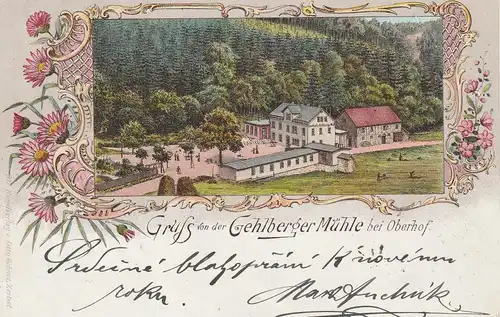 Gruß von der Gehlberger Mühle bei Oberhof.
Srdečné blahopřání k novému
roku.